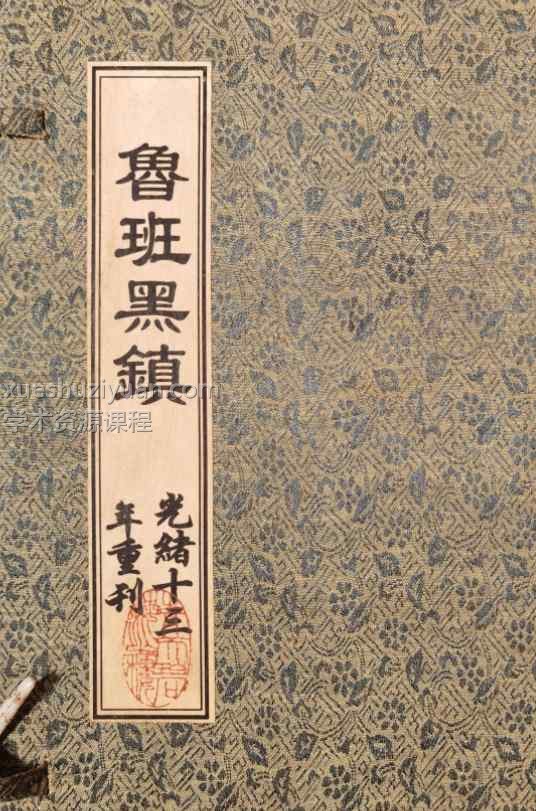 魯班黑鎮
光緒十三
年重刊
xueshuziyuan.com
学术资源课程